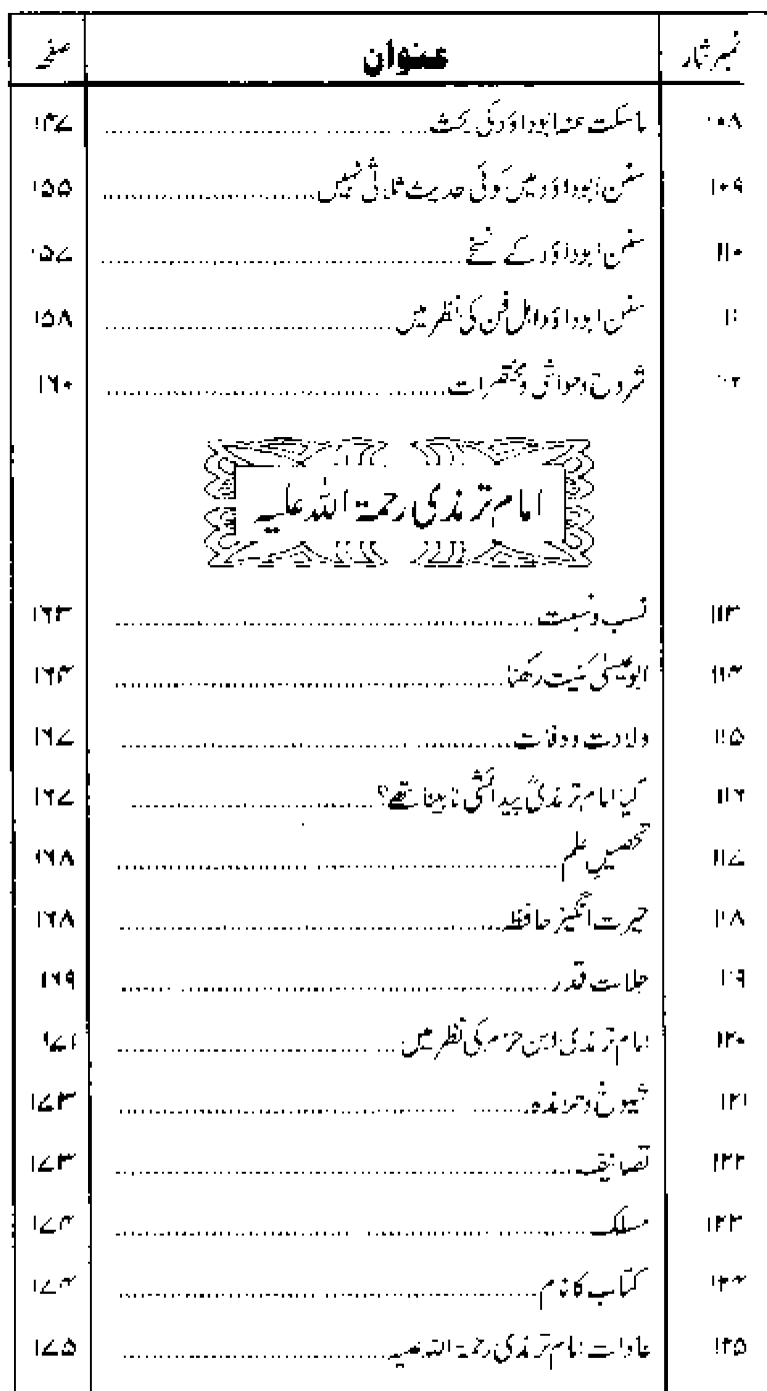 نمبر شمار عنوان صفحہ
۱۰۸ ماسکت عنہ ابوداؤد کی بحث ۱۴۷
۱۰۹ سنن ابوداؤد میں کوئی حدیث ثلاثی نہیں ۱۵۵
۱۱۰ سنن ابوداؤد کے نسخے ۱۵۷
۱۱۱ سنن ابوداؤد اہل فن کی نظر میں ۱۵۸
۱۱۲ شروح وحواشی ومختصرات ۱۶۰
امام ترمذی رحمۃ اللہ علیہ
۱۱۳ نسب ونسبت ۱۶۳
۱۱۴ ابوعیسیٰ کنیت رکھنا ۱۶۴
۱۱۵ ولادت ووفات ۱۶۷
۱۱۶ کیا امام ترمذیؒ پیدائشی نابینا تھے؟ ۱۶۷
۱۱۷ تحصیلِ علم ۱۶۸
۱۱۸ حیرت انگیز حافظہ ۱۶۸
۱۱۹ جلالت قدر ۱۶۹
۱۲۰ امام ترمذی ابن حزم کی نظر میں ۱۷۱
۱۲۱ شیوخ وتلامذہ ۱۷۳
۱۲۲ تصانیف ۱۷۳
۱۲۳ مسلک ۱۷۴
۱۲۴ کتاب کا نام ۱۷۴
۱۲۵ عادات امام ترمذی رحمۃ اللہ علیہ ۱۷۵